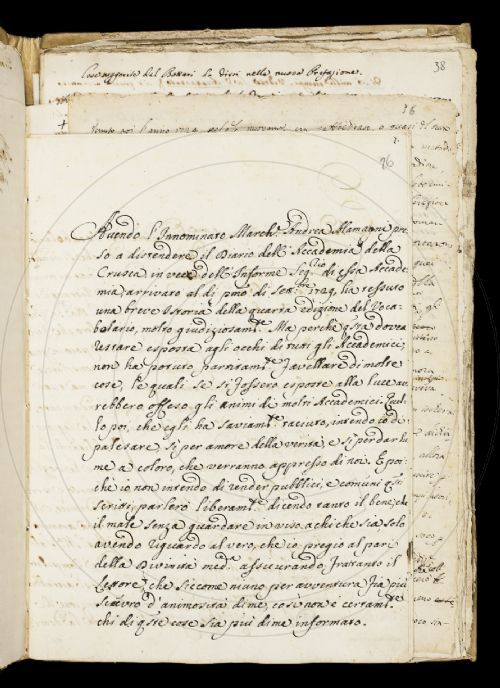 Cose suggerite dal Bottari da dirsi nella nuova Prefazione.
38
36
26
Avendo l'Innominato March.e Andrea Alamanni pre
so a distendere il Diario dell'Accademia della
Crusca in vece dell'Informe Seg.rio di essa Accade
mia, arrivato al dì pmo. di Sett.bre 1729, ha tessuto
una breve Istoria della quarta edizione del Voca-
bolario, molto giudiziosam.te Ma perchè qsta dovea
restare esposta agli occhi di tutti gli Accademici
non ha potuto partitam.te favellare di molte
cose, le quali se si fossero esposte alla luce av
rebbero offeso gli animi di molti Accademici. Quel
lo poi, che egli ha saviam.te taciuto, intendo io di
palesare, sì per amore della verità, e sì per dar lu
me a coloro, che verranno appresso di noi. E poi
chè io non intendo di render pubblici, e comuni qsti
scritti, parlerò liberam.te dicendo tanto il bene, che
il male senza guardare in viso a chi che sia solo
avendo riguardo al vero, che io pregio al pari
della Divinità med.a assicurando, frattanto il
Lettore, che siccome niuno per avventura fia più
scevro d'animosità di me, così non è certam.te
chi di qste cose sia più di me informato.